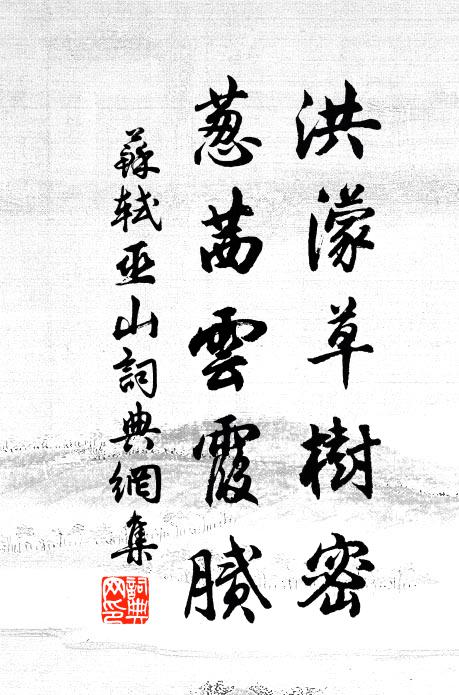 洪濛草樹密
蔥蒨雲霞膩
蘇軾巫山詞典網集
詞典
网印